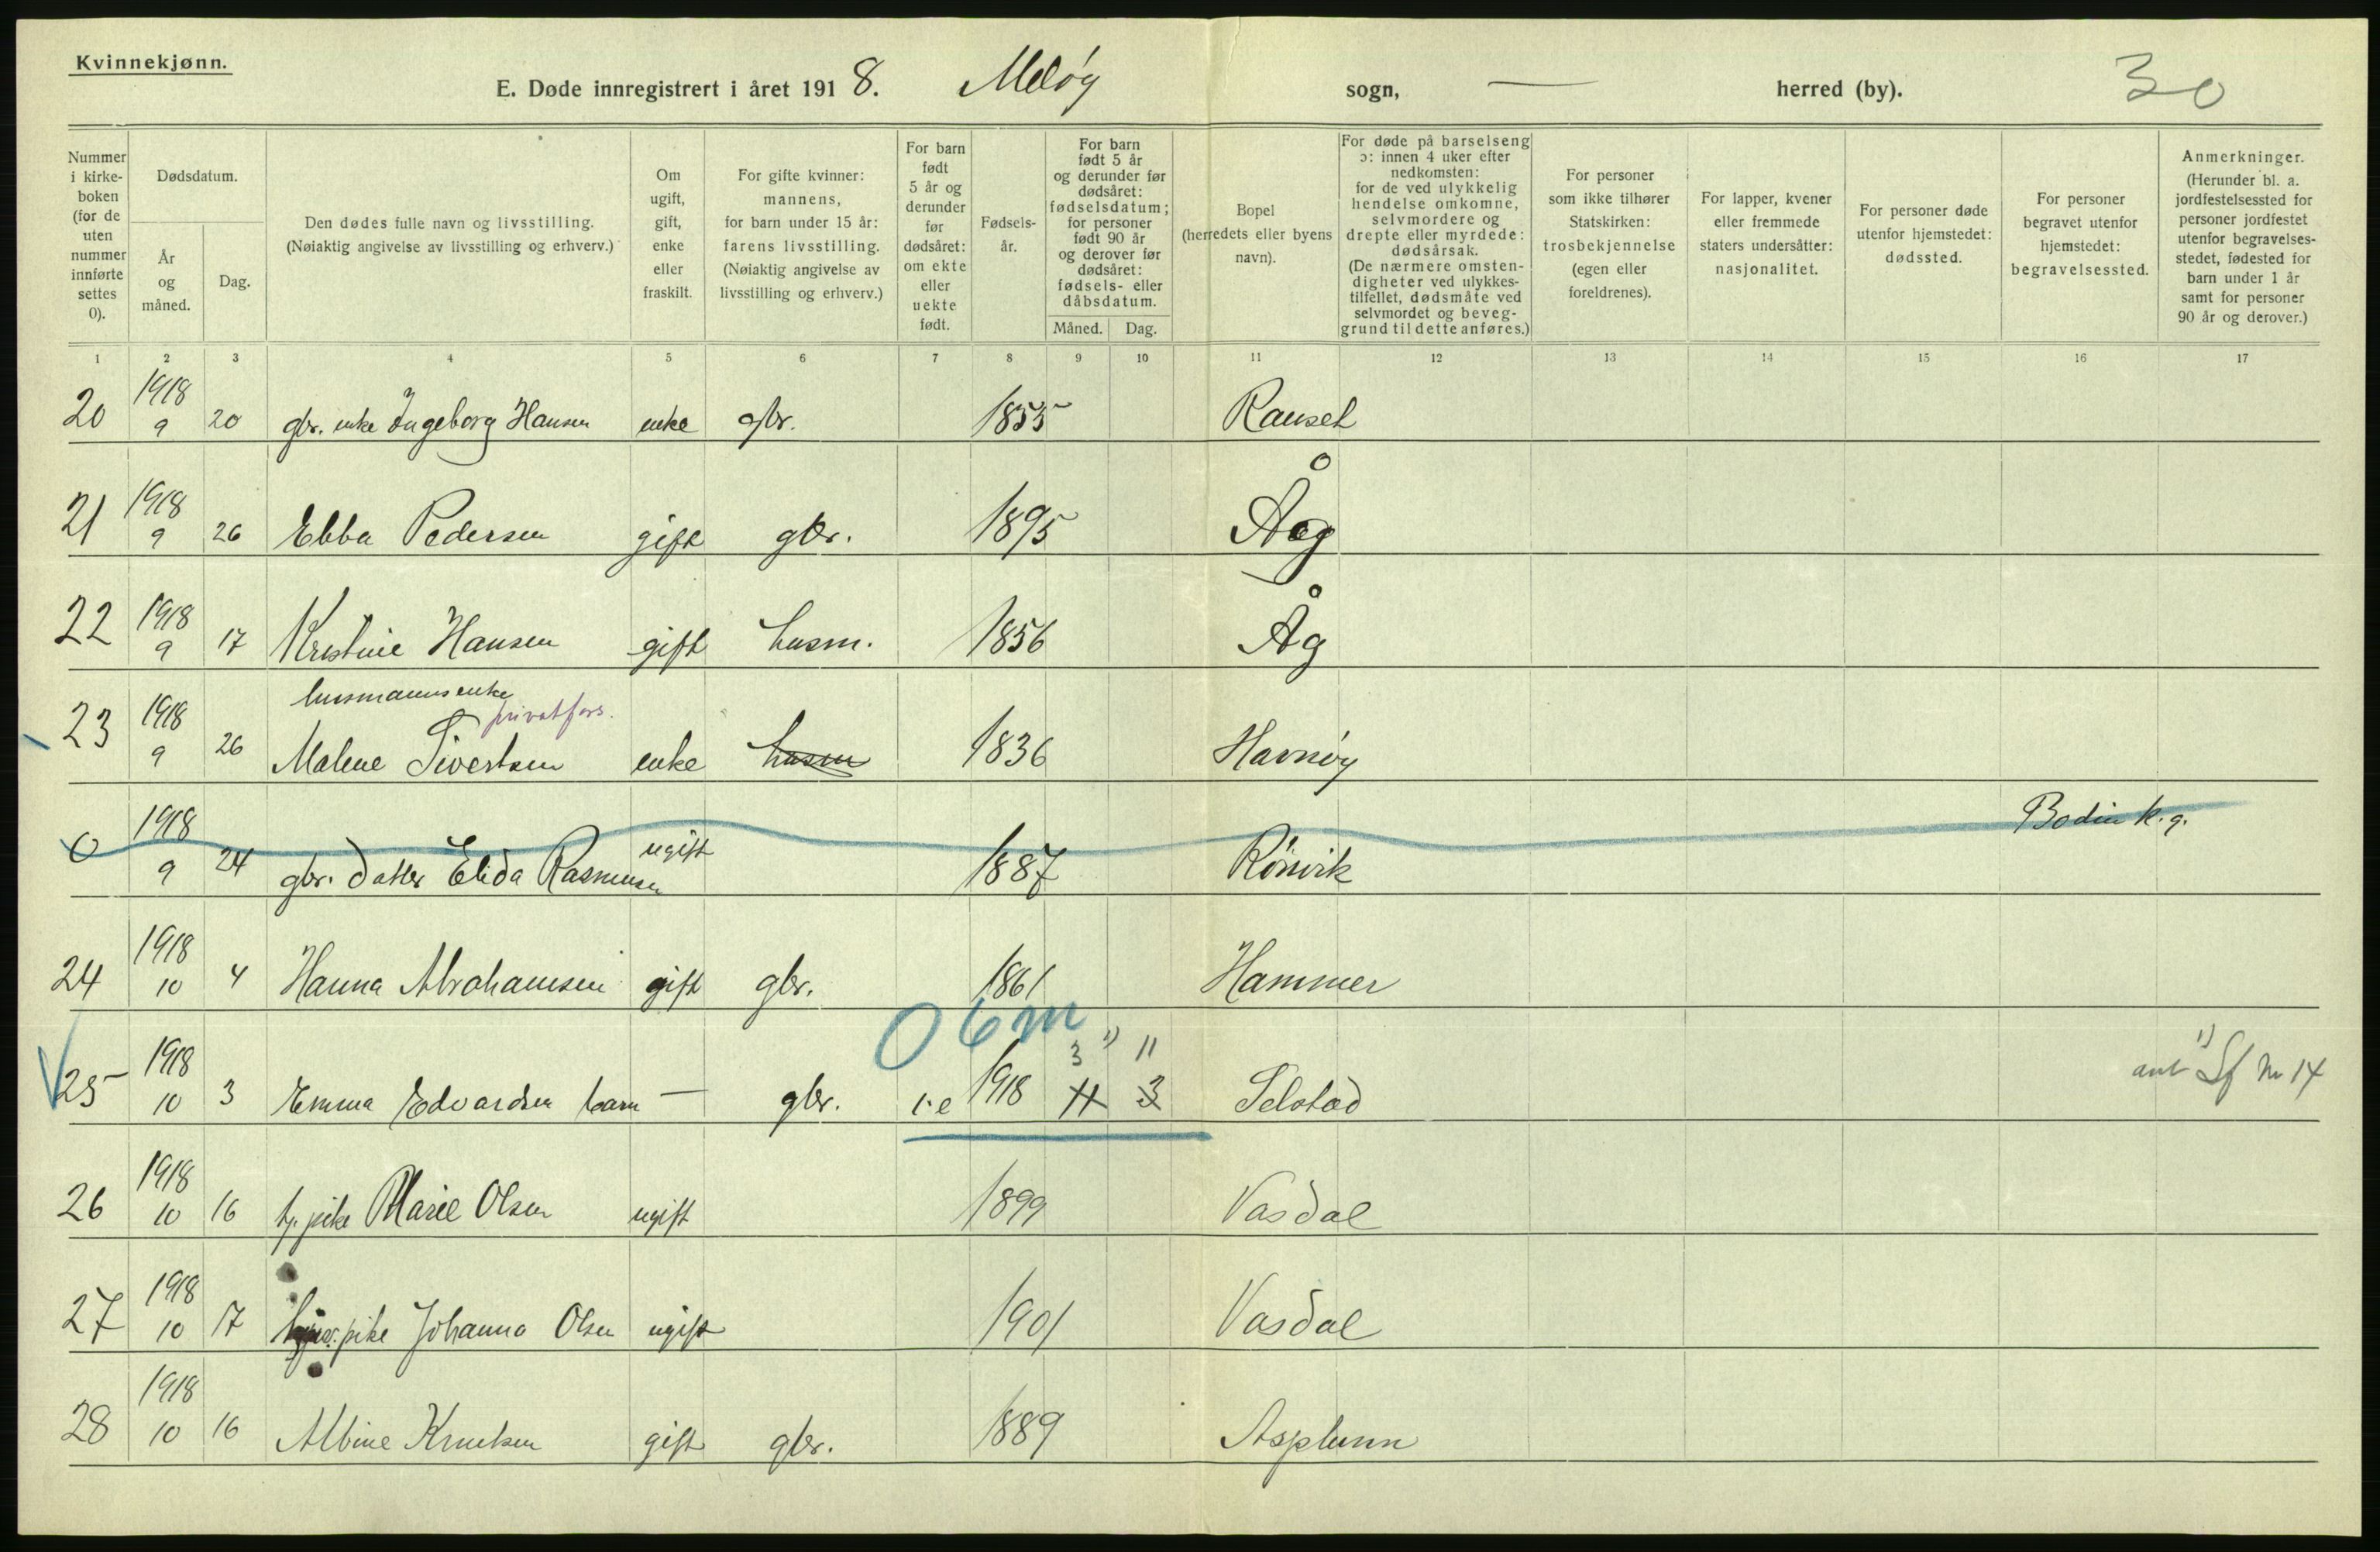 Kvinnekjønn.
E. Døde innregistrert i året 1918. Meløy sogn, — herred (by). 30
Nummer i kirke-boken (for de uten nummer innførte settes 0).
Dødsdatum.
År og måned.
Dag.
Den dødes fulle navn og livsstilling.
(Nøiaktig angivelse av livsstilling og erhverv.)
Om ugift, gift, enke eller fraskilt.
For gifte kvinner: mannens, for barn under 15 år: farens livsstilling. (Nøiaktig angivelse av livsstilling og erhverv.)
For barn født 5 år og derunder før dødsåret: om ekte eller uekte født.
Fødsels-år.
For barn født 5 år og derunder før dødsåret: fødselsdatum; for personer født 90 år og derover før dødsåret: fødsels- eller dåbsdatum.
Måned. Dag.
Bopel (herredets eller byens navn).
For døde på barselseng ɔ: innen 4 uker efter nedkomsten: for de ved ulykkelig hendelse omkomne, selvmordere og drepte eller myrdede: dødsårsak. (De nærmere omsten-digheter ved ulykkes-tilfellet, dødsmåte ved selvmordet og beveg-grund til dette anføres.)
For personer som ikke tilhører Statskirken: trosbekjennelse (egen eller foreldrenes).
For lapper, kvener eller fremmede staters undersåtter: nasjonalitet.
For personer døde utenfor hjemstedet: dødssted.
For personer begravet utenfor hjemstedet: begravelsessted.
Anmerkninger. (Herunder bl. a. jordfestelsessted for personer jordfestet utenfor begravelses-stedet, fødested for barn under 1 år samt for personer 90 år og derover.)
1 2 3 4 5 6 7 8 9 10 11 12 13 14 15 16 17
20 1918 9 20 gbr. enke Ingeborg Hansen enke gbr. 1855 Rauset
21 1918 9 26 Ebba Pedersen gift gbr. 1895 Åg
22 1918 9 17 Kristine Hansen gift husm. 1856 Åg
husmannsenke privatfors.
23 1918 9 26 Malene Sivertsen enke husm 1836 Havnøy
0 1918 9 24 gbr. datter Elida Rasmussen ugift 1887 Rönvik Bodin k.g.
24 1918 10 4 Hanna Abrahamsen gift gbr. 1861 Hammer
0 6 m
3 1) 11
25 1918 10 3 Emma Edvardsen barn — gbr. e 1918 11 3 Selstad 1) ant Sf Nr 14
26 1918 10 16 tj. pike Marie Olsen ugift 1899 Vasdal
27 1918 10 17 pike Johanna Olsen ugift 1901 Vasdal
28 1918 10 16 Albine Knutsen gift gbr. 1889 Asplunn